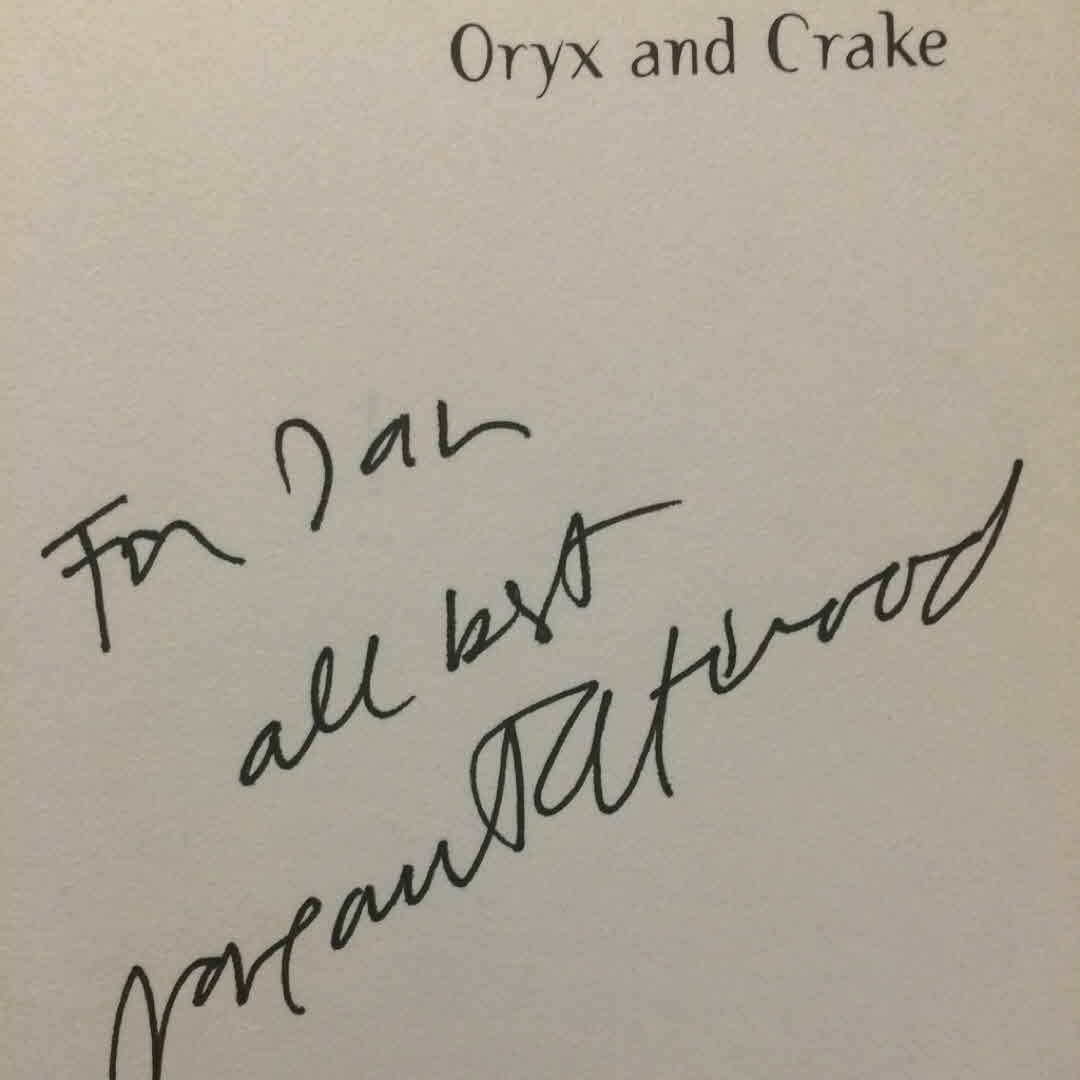 Oryx and Crake
For Dan
all best
Margaret Atwood